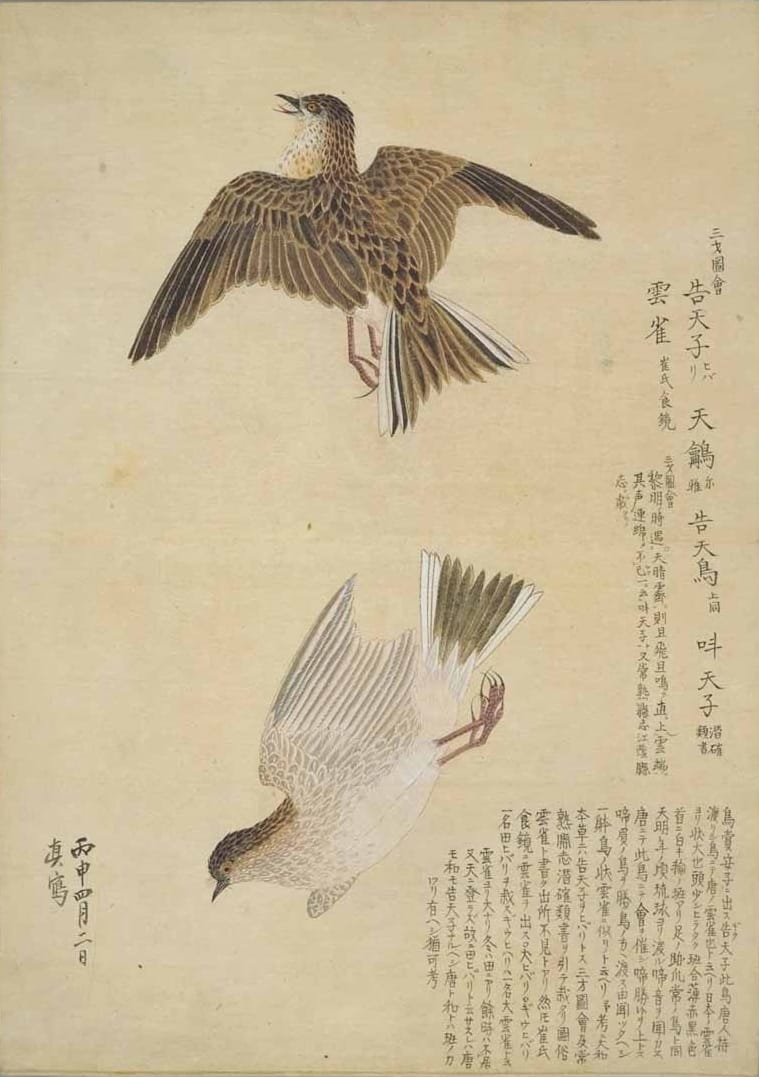 三才圖會
告天子 ヒバリ 天鸙 尔雅 告天鳥 上同 呌天子 潜確類書
雲雀 崔氏食鏡
三才圖會
黎明時遇天晴霽則且飛且鳴直上雲端
其声連綿不已一云呌天子又常熟縣志江陰縣
志載
鳥賞案子ニ出ス告天子此鳥唐人持
渡リシ鳥ニテ唐ノ雲雀也ト云ヘリ日本ノ雲雀
ヨリ状大也頭少シヒラタク班合薄赤黒色
首ニ白キ輪ノ班アリ足ノ助爪常ノ鳥上同
天明年ノ頃琉球ヨリ渡ル啼音ヲ聞カス
唐ニテ此鳥ニテ會ヲ催シ啼勝ヲ上トス
啼負ノ鳥ヲ勝鳥ノカ渡ス由聞ツタヘシ
一躰鳥ノ状雲雀ニ似リト云ヘリ予考ニ大和
本草ニ六告天子ヲヒバリトス三才圖會及常
熟縣志潜確類書ヲ引テ載タリ圖俗
雲雀ト書ク出所不見トアリ然氏崔氏
食鏡ニ雲雀ヲ出ス大ヒバリギウヒバリ
一名田ヒバリヲ載スギウヒバリハ一名大雲雀ト云
雲雀ヨリ大ナリ冬ハ田ニアリ餘時ハ不居
又天ニ登ラズ故ニ田ヒバリト云サスレハ唐
モ和モ告天子ナルヘシ唐ト和トハ班ノカ
ワリ有ヘシ猶可考
丙申四月二日
真寫